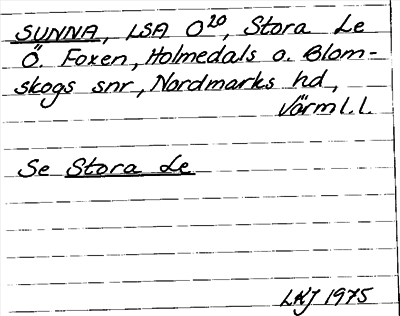 SUNNA, LSA O20, Stora Le
Ö. Foxen, Holmedals o. Blom-
skogs snr, Nordmarks hd,
Värml.l.
Se Stora Le
LKJ 1975